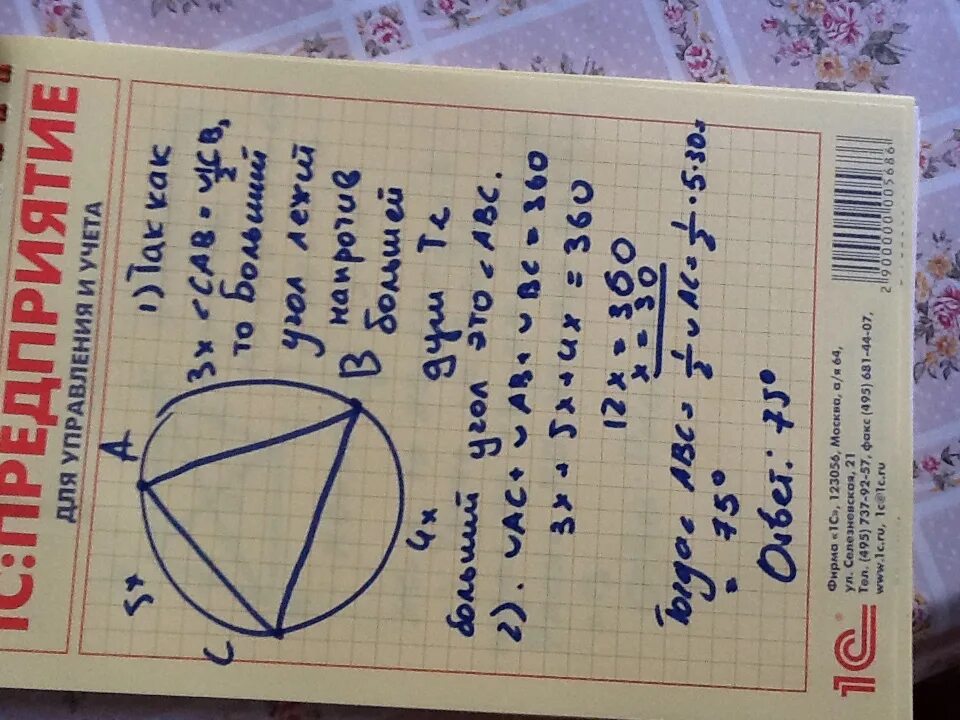 1С:ПРЕДПРИЯТИЕ
ДЛЯ УПРАВЛЕНИЯ И УЧЕТА
1) Так как
<CAB = ◡CB/2,
то больший
угол лежий
напротив
большей
дуги Те
5x
A
3x
C
B
4x
больший угол это <ABC.
2). ◡AC + ◡AB + ◡BC = 360
3x + 5x + 4x = 360
12x = 360
x = 30
Тогда < ABC = 1/2 ◡AC = 1/2 · 5 · 30 =
= 75°
Ответ: 75°
1С®
Фирма «1С», 123056, Москва, а/я 64,
ул. Селезневская, 21
Тел. (495) 737-92-57, факс (495) 681-44-07,
www.1c.ru, 1c@1c.ru
2900000005686